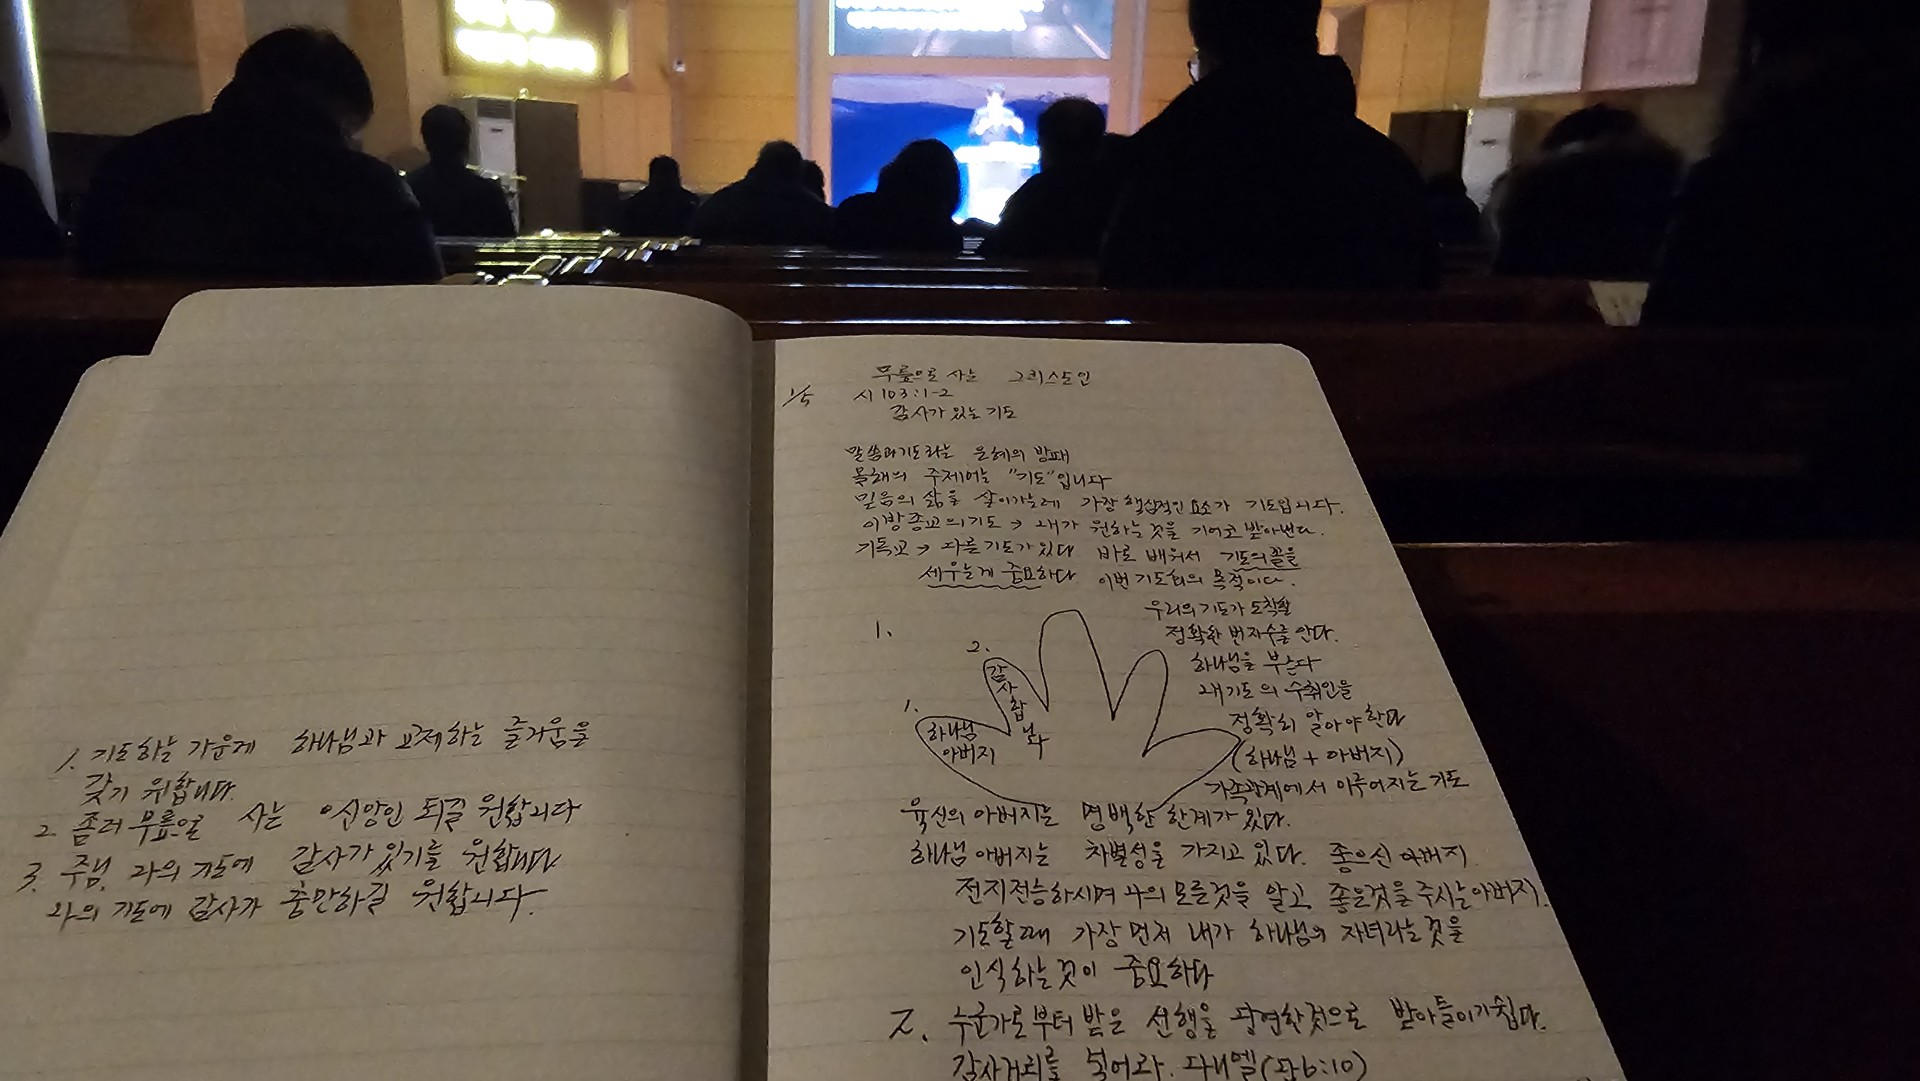 1. 기도하는 가운데 하나님과 교제하는 즐거움을
갖기 원합니다.
2. 좀 더 무릎으로 사는 신앙인 되길 원합니다
3. 주님, 과의 기도에 감사가 있기를 원합니다
나의 기도에 감사가 충만하길 원합니다.
무릎으로 사는 그리스도인
1/5 시 103:1-2
감사가 있는 기도
말씀과 기도라는 은혜의 방패
올해의 주제어는 "기도"입니다
믿음의 삶을 살아가는데 가장 핵심적인 요소가 기도입니다.
이방종교의 기도 → 내가 원하는 것을 기어코 받아낸다.
기독교 → 다른 기도가 있다 바로 배워서 기도의 꼴을
세우는게 중요하다 이번 기도회의 목적이다.
우리의 기도가 도착할
1. 정확한 번지수를 안다.
2. 하나님을 부른다
감사합니다
내 기도의 수취인을
1. 정확히 알아야 한다
하나님
아버지
(하나님 + 아버지)
가족관계에서 이루어지는 기도
육신의 아버지는 명백한 한계가 있다.
하나님 아버지는 차별성을 가지고 있다. 좋으신 아버지
전지전능하시며 나의 모든것을 알고, 좋은것을 주시는 아버지.
기도할때 가장 먼저 내가 하나님의 자녀라는 것을
인식하는 것이 중요하다
2. 누군가로부터 받은 선행을 당연한것으로 받아들이기 쉽다.
감사거리를 적어라. 다니엘(단6:10)